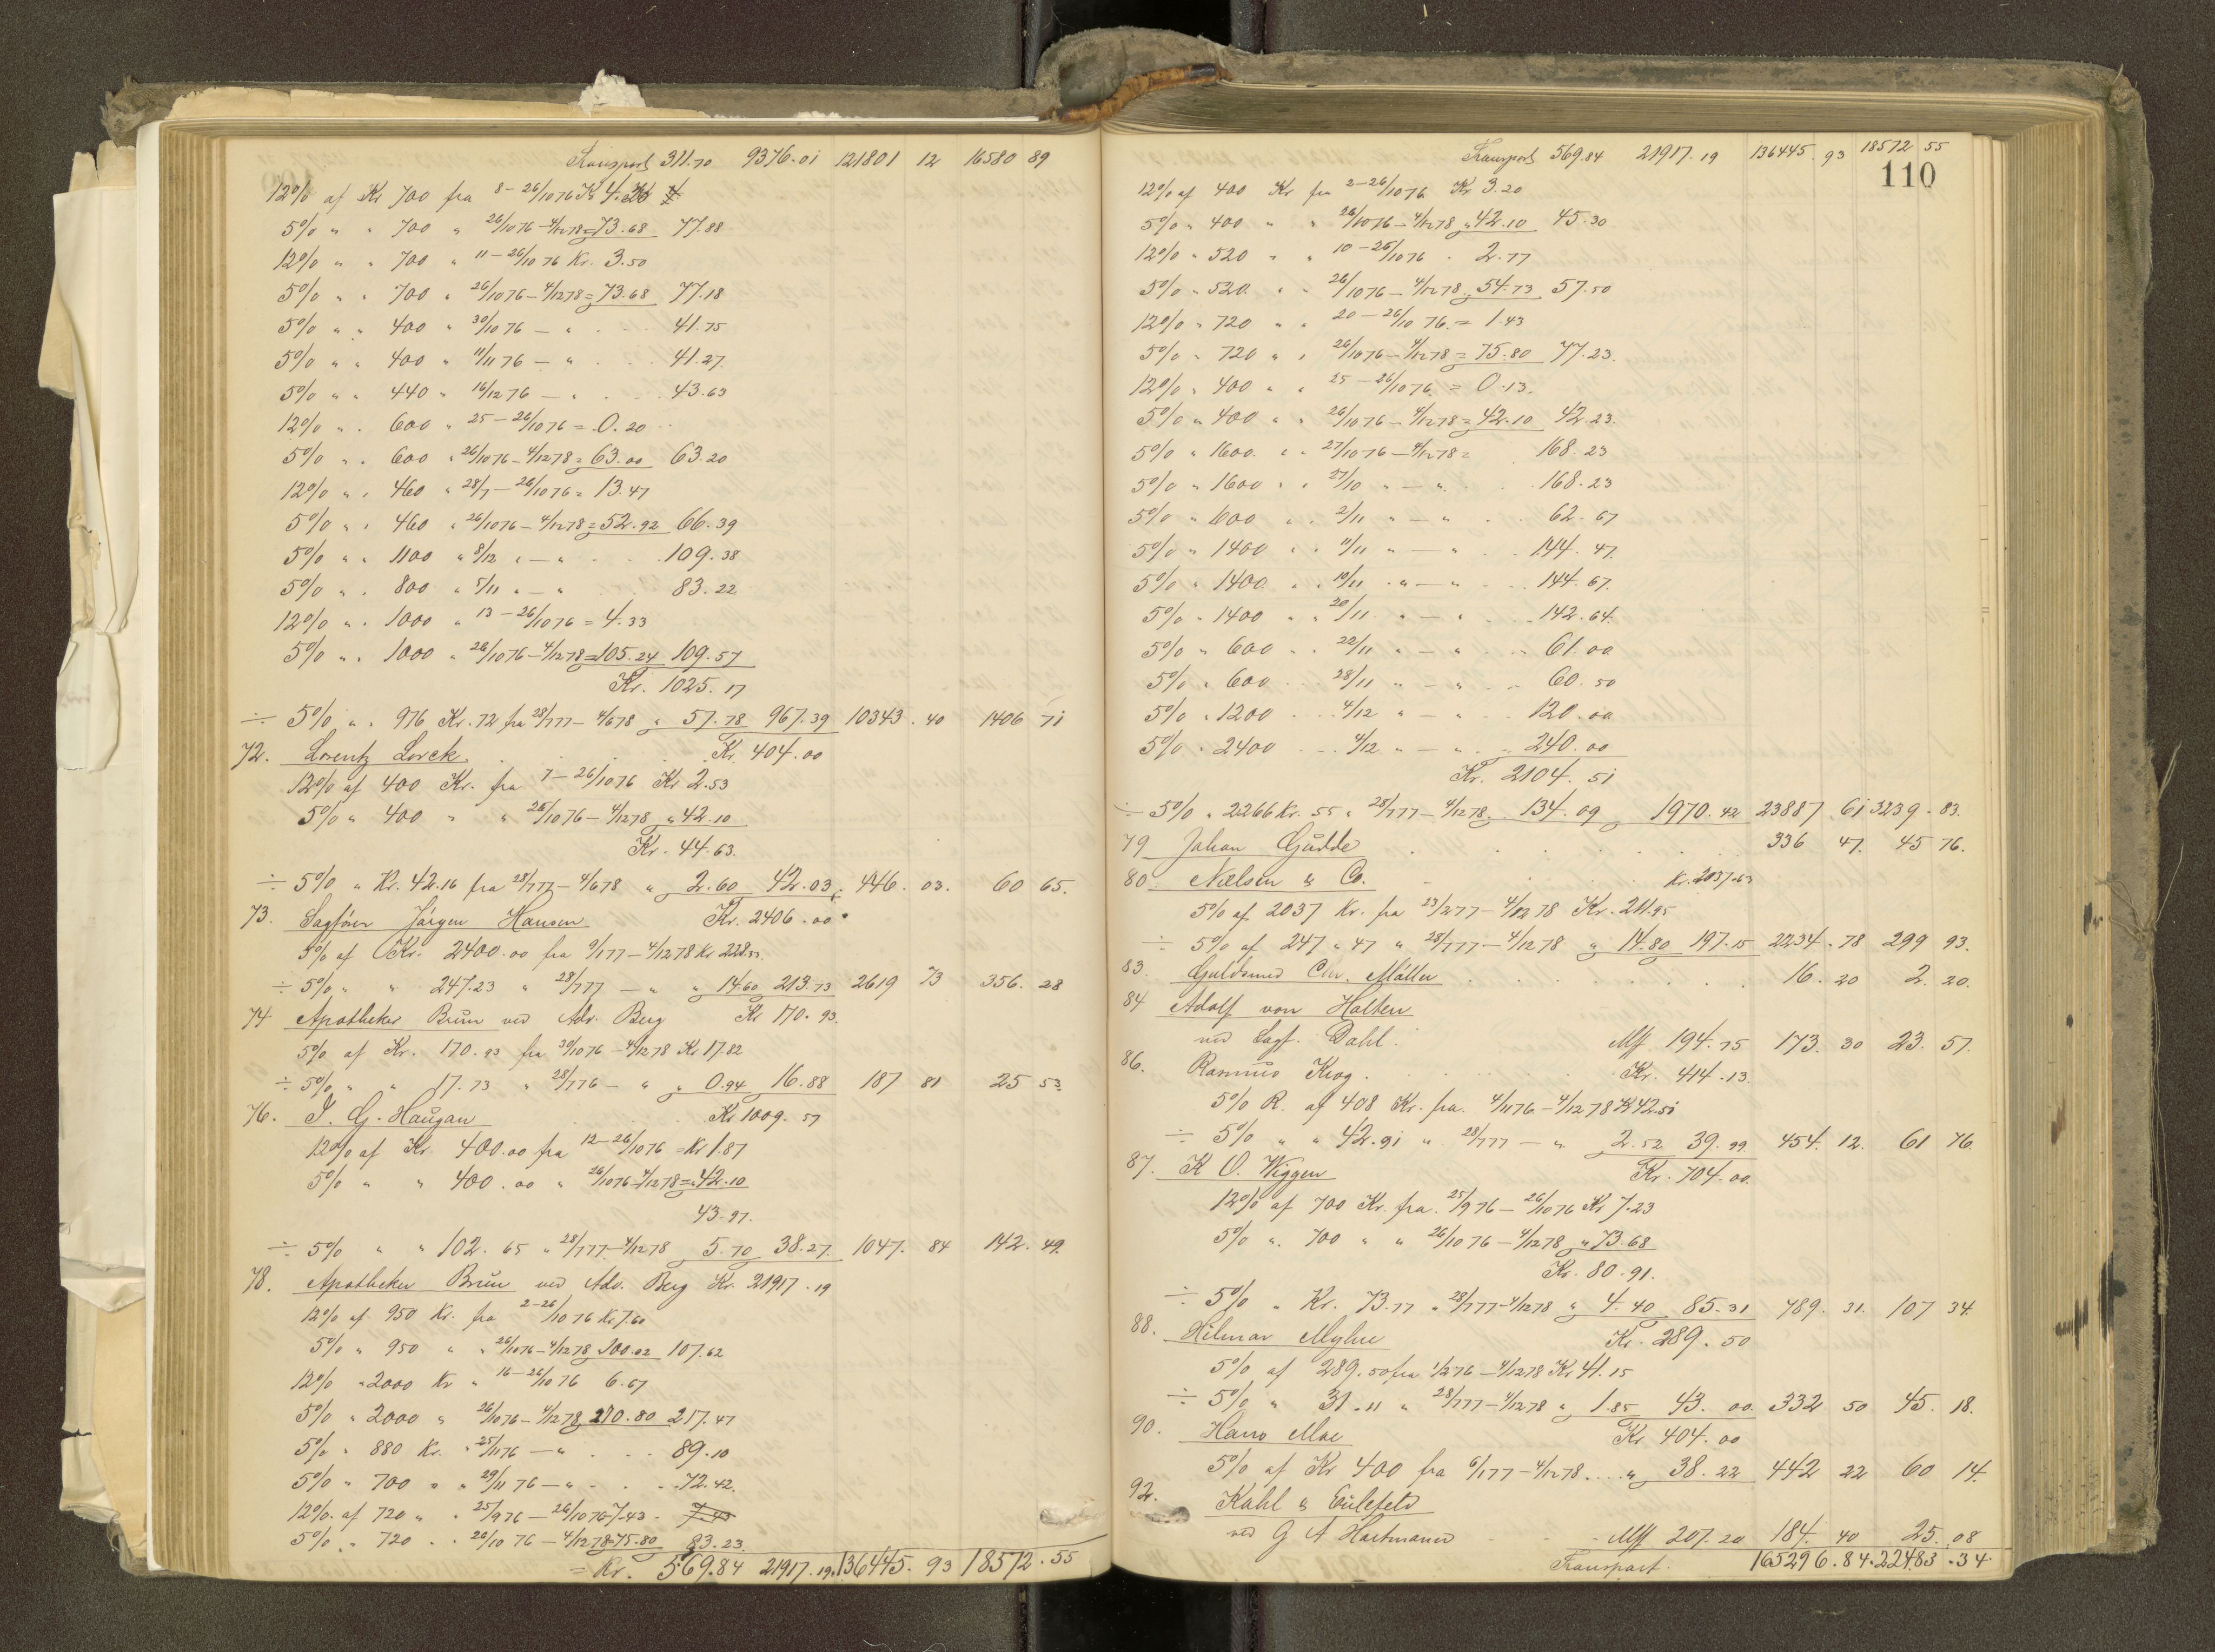 Transport 311.70 9376.01 121801 12 16580 89
12% af Kr 700 fra 8-26/1076 Kr 4.20
5% " " 700 " 26/1076-4/1278=73.68 77.88
12% " " 700 " 11-26/1076 Kr. 3.50
5% " " 700 " 26/1076-4/1278=73.68 77.18
5% " " 400 " 30/1076 - " 41.75
5% " " 400 " 11/1176 - " 41.27
5% " " 440 " 16/1276 - " 43.63
12% " " 600 " 25-26/1076 = 0.20
5% " " 600 " 26/1076-4/1278=63.00 63.20
12% " " 460 " 28/7-26/1076=13.47
5% " " 460 " 26/1076-4/1278=52.92 66.39
5% " " 1100 " 8/12 " - " 109.38
5% " " 800 " 5/11 " - " 83.22
12% " " 1000 " 13-26/1076=4.33
5% " " 1000 " 26/1076-4/1278=105.24 109.57
Kr. 1025.17
÷ 5% " " 976 Kr. 72 fra 28/777-4/678 " 57.78 967.39 10343.40 1406 71
72. Lorentz Lorck Kr. 404.00
12% af 400 Kr. fra 7-26/1076 Kr 2.53
5% " 400 " " 26/1076-4/1278 " 42.10
Kr. 44.63.
÷ 5% " Kr. 42.16 fra 28/777-4/678 " 2.60 42.03 446.03. 60 65.
73. Sagfører Jørgen Hansen Kr. 2406.00
5% af Kr. 2400.00 fra 9/177-4/1278 Kr 228.33
÷ 5% " " 247.23 " 28/777 - " " 14.60 213.73 2619 73 356.28
74 Apotheker Brun ved Adv. Berg Kr 170.93.
5% af Kr. 170.93 fra 30/1076-4/1278 Kr 17.82
÷ 5% " " 17.73 " 28/776 - " " 0.94 16.88 187 81 25 53.
76. I. G. Haugan Kr 1009.57
12% af Kr 400.00 fra 12-26/1076 = Kr 1.87
5% " " 400.00 " 26/1076-4/1278="42.10
43.97.
÷ 5% " " 102.65 " 28/777-4/1278 5.70 38.27. 1047.84 142.49.
78. Apotheker Brun ved Adv. Berg Kr. 21917.19
12% af 950 Kr. fra 2-26/1076 Kr 7.60
5% " 950 " " 26/1076-4/1278 100.02 107.62
12% " 2000 Kr " 16-26/1076 6.67
5% " 2000 " 26/1076-4/1278 210.80 217.47
5% " 880 Kr. " 25/1176 - " 89.10
5% " 700 " " 29/1176 - " 72.42.
12% af 720 " " 25/976-26/1076=7.43 - 7.43
5% " 720 " " 26/1076-4/1278=75.80 83.23.
= Kr. 569.84 21917.19. 136445.93 18572.55
Transport 569.84 21917.19 136445.93 18572 55
110
12% af 400 Kr fra 2-26/1076 Kr 3.20
5% " 400 " " 26/1076-4/1278 " 42.10 45.30
12% " 520 " " 10-26/1076 " 2.77
5% " 520 " " 26/1076-4/1278 " 54.73 57.50
12% " 720 " " 20-26/1076 = 1.43
5% " 720 " " 26/1076-4/1278=75.80 77.23.
12% " 400 " " 25-26/1076 = 0.13.
5% " 400 " " 26/1076-4/1278=42.10 42.23.
5% " 1600 " " 27/1076-4/1278= 168.23
5% " 1600 " " 27/10 " - " 168.23
5% " 600 " " 2/11 " - " 62.67
5% " 1400 " " 11/11 " - " 144.47.
5% " 1400 " " 10/11 " - " 144.67.
5% " 1400 " " 20/11 " - " 142.64.
5% " 600 " " 22/11 " - " 61.00
5% " 600 " " 28/11 " - " 60.50
5% " 1200 " " 4/12 " - " 120.00
5% " 2400 " " 4/12 " - " 240.00
Kr. 2104.51
÷ 5% " 2266 Kr. 55 " 28/777-4/1278 " 134.09 1970.42 23887.61 3239.83.
79 Johan Gudde 336 47. 45 76.
80. Nielsen & Co. Kr. 2037.63
5% af 2037 Kr. fra 23/277-4/1278 Kr. 211.95
÷ 5% af 247 " 47 " 28/777-4/1278 " 14.80 197.15 2234.78 299 93.
83. Guldsmed Chr. Møller 16.20 2.20.
84 Adolf von Halten
ved Sagf. Dahl Mk 194.75 173.30 23.57.
86. Rasmus Krog Kr. 414.13.
5% R. af 408 Kr. fra 4/1176-4/1278 Kr 42.51
÷ 5% " " 42.91 " 28/777 - " 2.52 39.99 454.12. 61 76.
87. K O. Wiggen Kr. 704.00.
12% af 700 Kr. fra 25/976-26/1076 Kr 7.23
5% " 700 " " 26/1076-4/1278 " 73.68
Kr. 80.91.
÷ 5% " Kr. 73.77 " 28/777-4/1278 " 4.40 85.31 789.31. 107 34.
88. Hilmar Myhre Kr. 289.50
5% af 289.50 fra 1/276-4/1278 Kr 41.15
÷ 5% " 31.11 " 28/777-4/1278 " 1.85 43.00. 332 50 45.18.
90. Hans Moe Kr 404.00
5% af Kr 400 fra 6/177-4/1278 " 38.22 442 22 60 14.
92. Kahl & Eulefeld
ved G A Hartmann Mk 207.20 184.40 25.08
Transport. 165296.84.22483.34